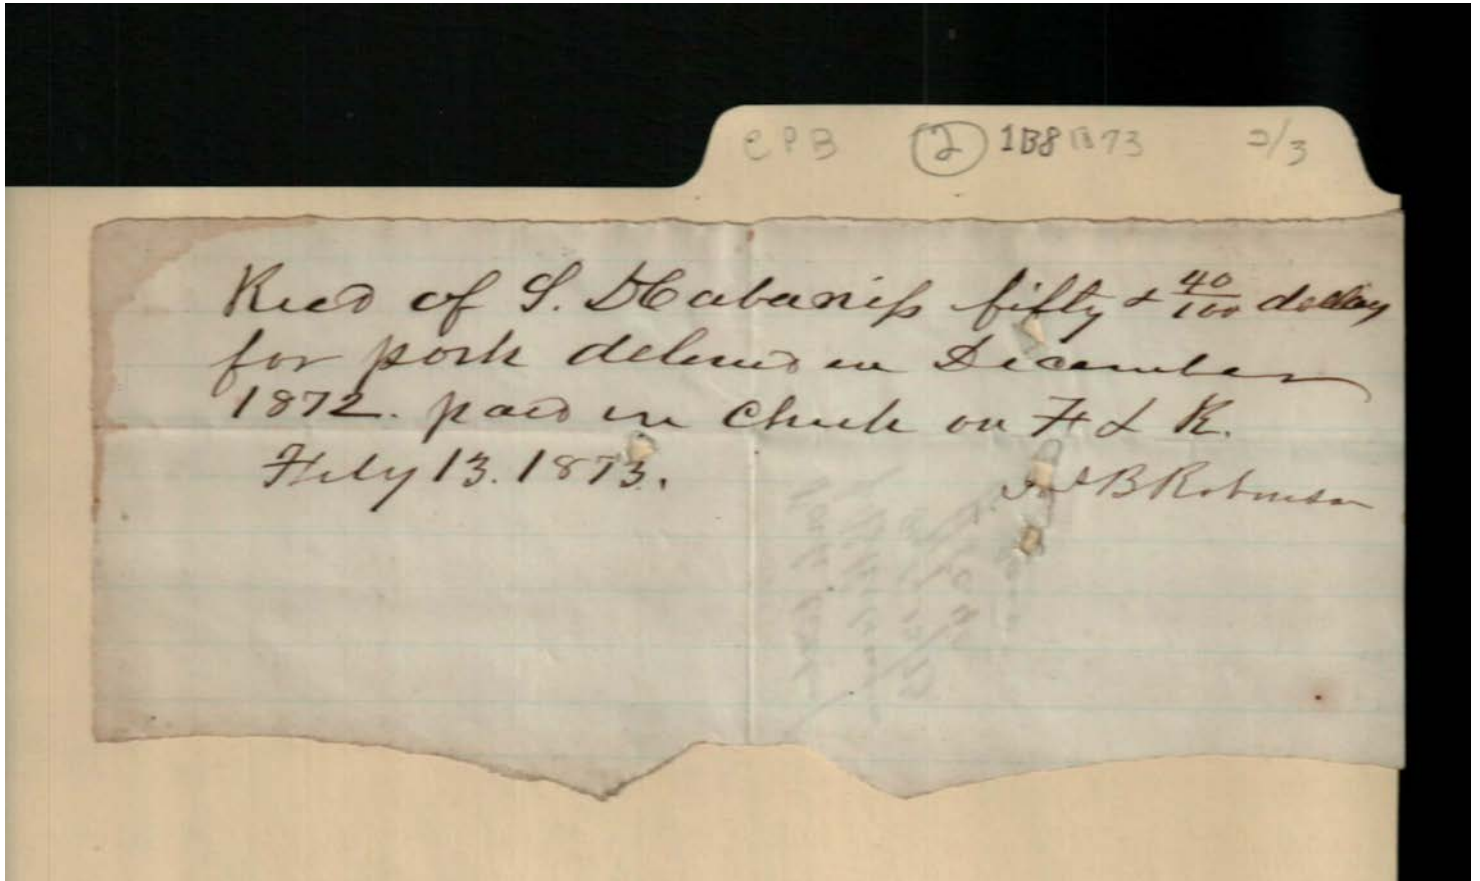 CPB (2) 1B8 1873 2/3
Recd of S. D. Cabaniss fifty & 40/100 dollars
for pork delivered in December
1872. paid in Check on F & R.
Feby 13. 1873.
B Robinson